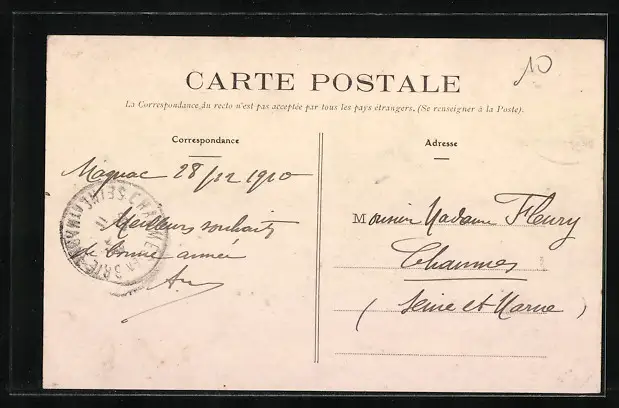 10
CARTE POSTALE
La Correspondance du recto n'est pas acceptée par tous les pays étrangers. (Se renseigner à la Poste).
Correspondance
Magnac 28/12 1910
Meilleurs souhaits
de bonne année
Adresse
Monsieur Madame Fleury
Chaumes
(Seine et Marne)
CHAUMES EN BRIE
SEINE ET MARNE